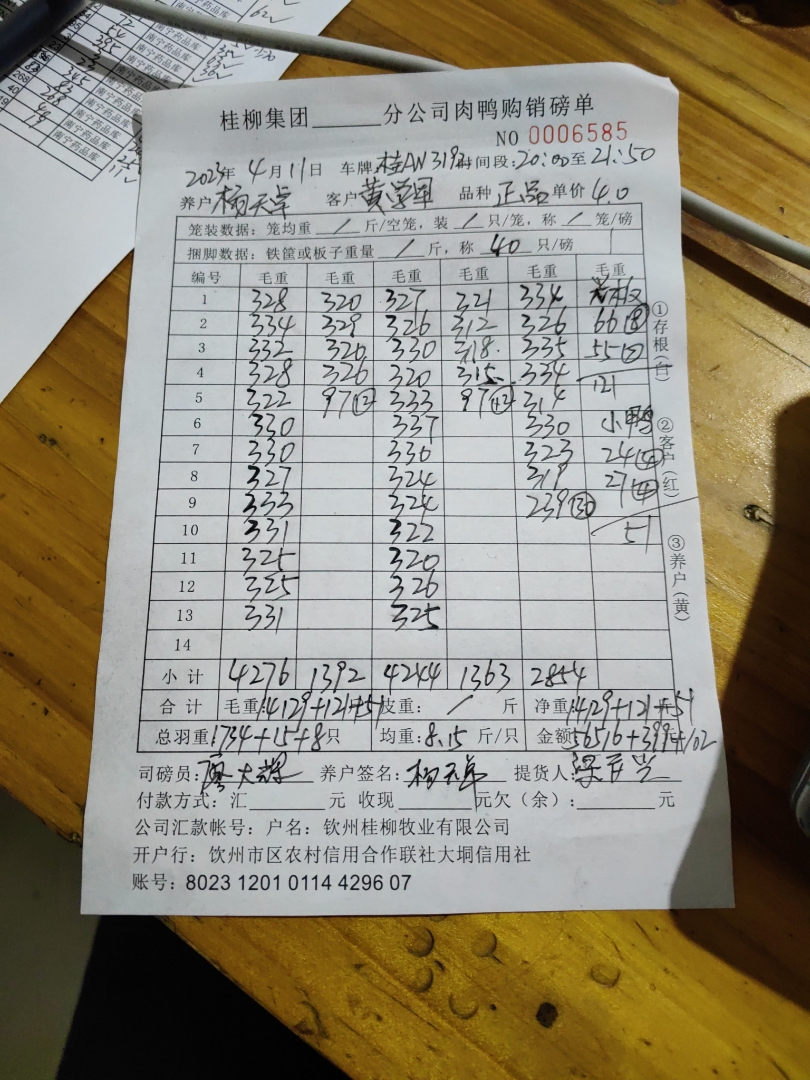 桂柳集团______分公司肉鸭购销磅单
NO 0006585
2023年 4月11日 车牌:桂AN319 时间段:20:00至21:50
养户 杨天卓 客户 黄学军 品种 正品 单价 4.0
笼装数据:笼均重 / 斤/空笼,装 / 只/笼,称 / 笼/磅
捆脚数据:铁筐或板子重量 / 斤,称 40 只/磅
编号 毛重 毛重 毛重 毛重 毛重 毛重
1 328 320 327 321 334
2 334 329 326 312 326 66⑧
3 332 320 330 318 335 55⑦
4 328 326 320 315 334 121
5 322 97⑫ 333 97⑫ 314
6 330 337 330 小鸭
7 330 330 323 24④
8 327 324 319 27④
9 333 324 239㉚
10 331 322 51
11 325 320
12 325 326
13 331 325
14
小计 4276 1392 4244 1363 2854
合计 毛重:14129+121+51 皮重: / 斤 净重:14129+121+51
总羽重:1734+15+8只 均重:8.15 斤/只 金额:56516+399+102
司磅员: 养户签名: 提货人:
付款方式:汇______元 收现______元欠(余):______元
公司汇款帐号:户名:钦州桂柳牧业有限公司
开户行:钦州市区农村信用合作联社大垌信用社
账号:8023 1201 0114 4296 07
①存根(白)
②客户(红)
③养户(黄)
南宁药品库
南宁药品库
南宁药品库
南宁药品库
南宁药品库
南宁药品库